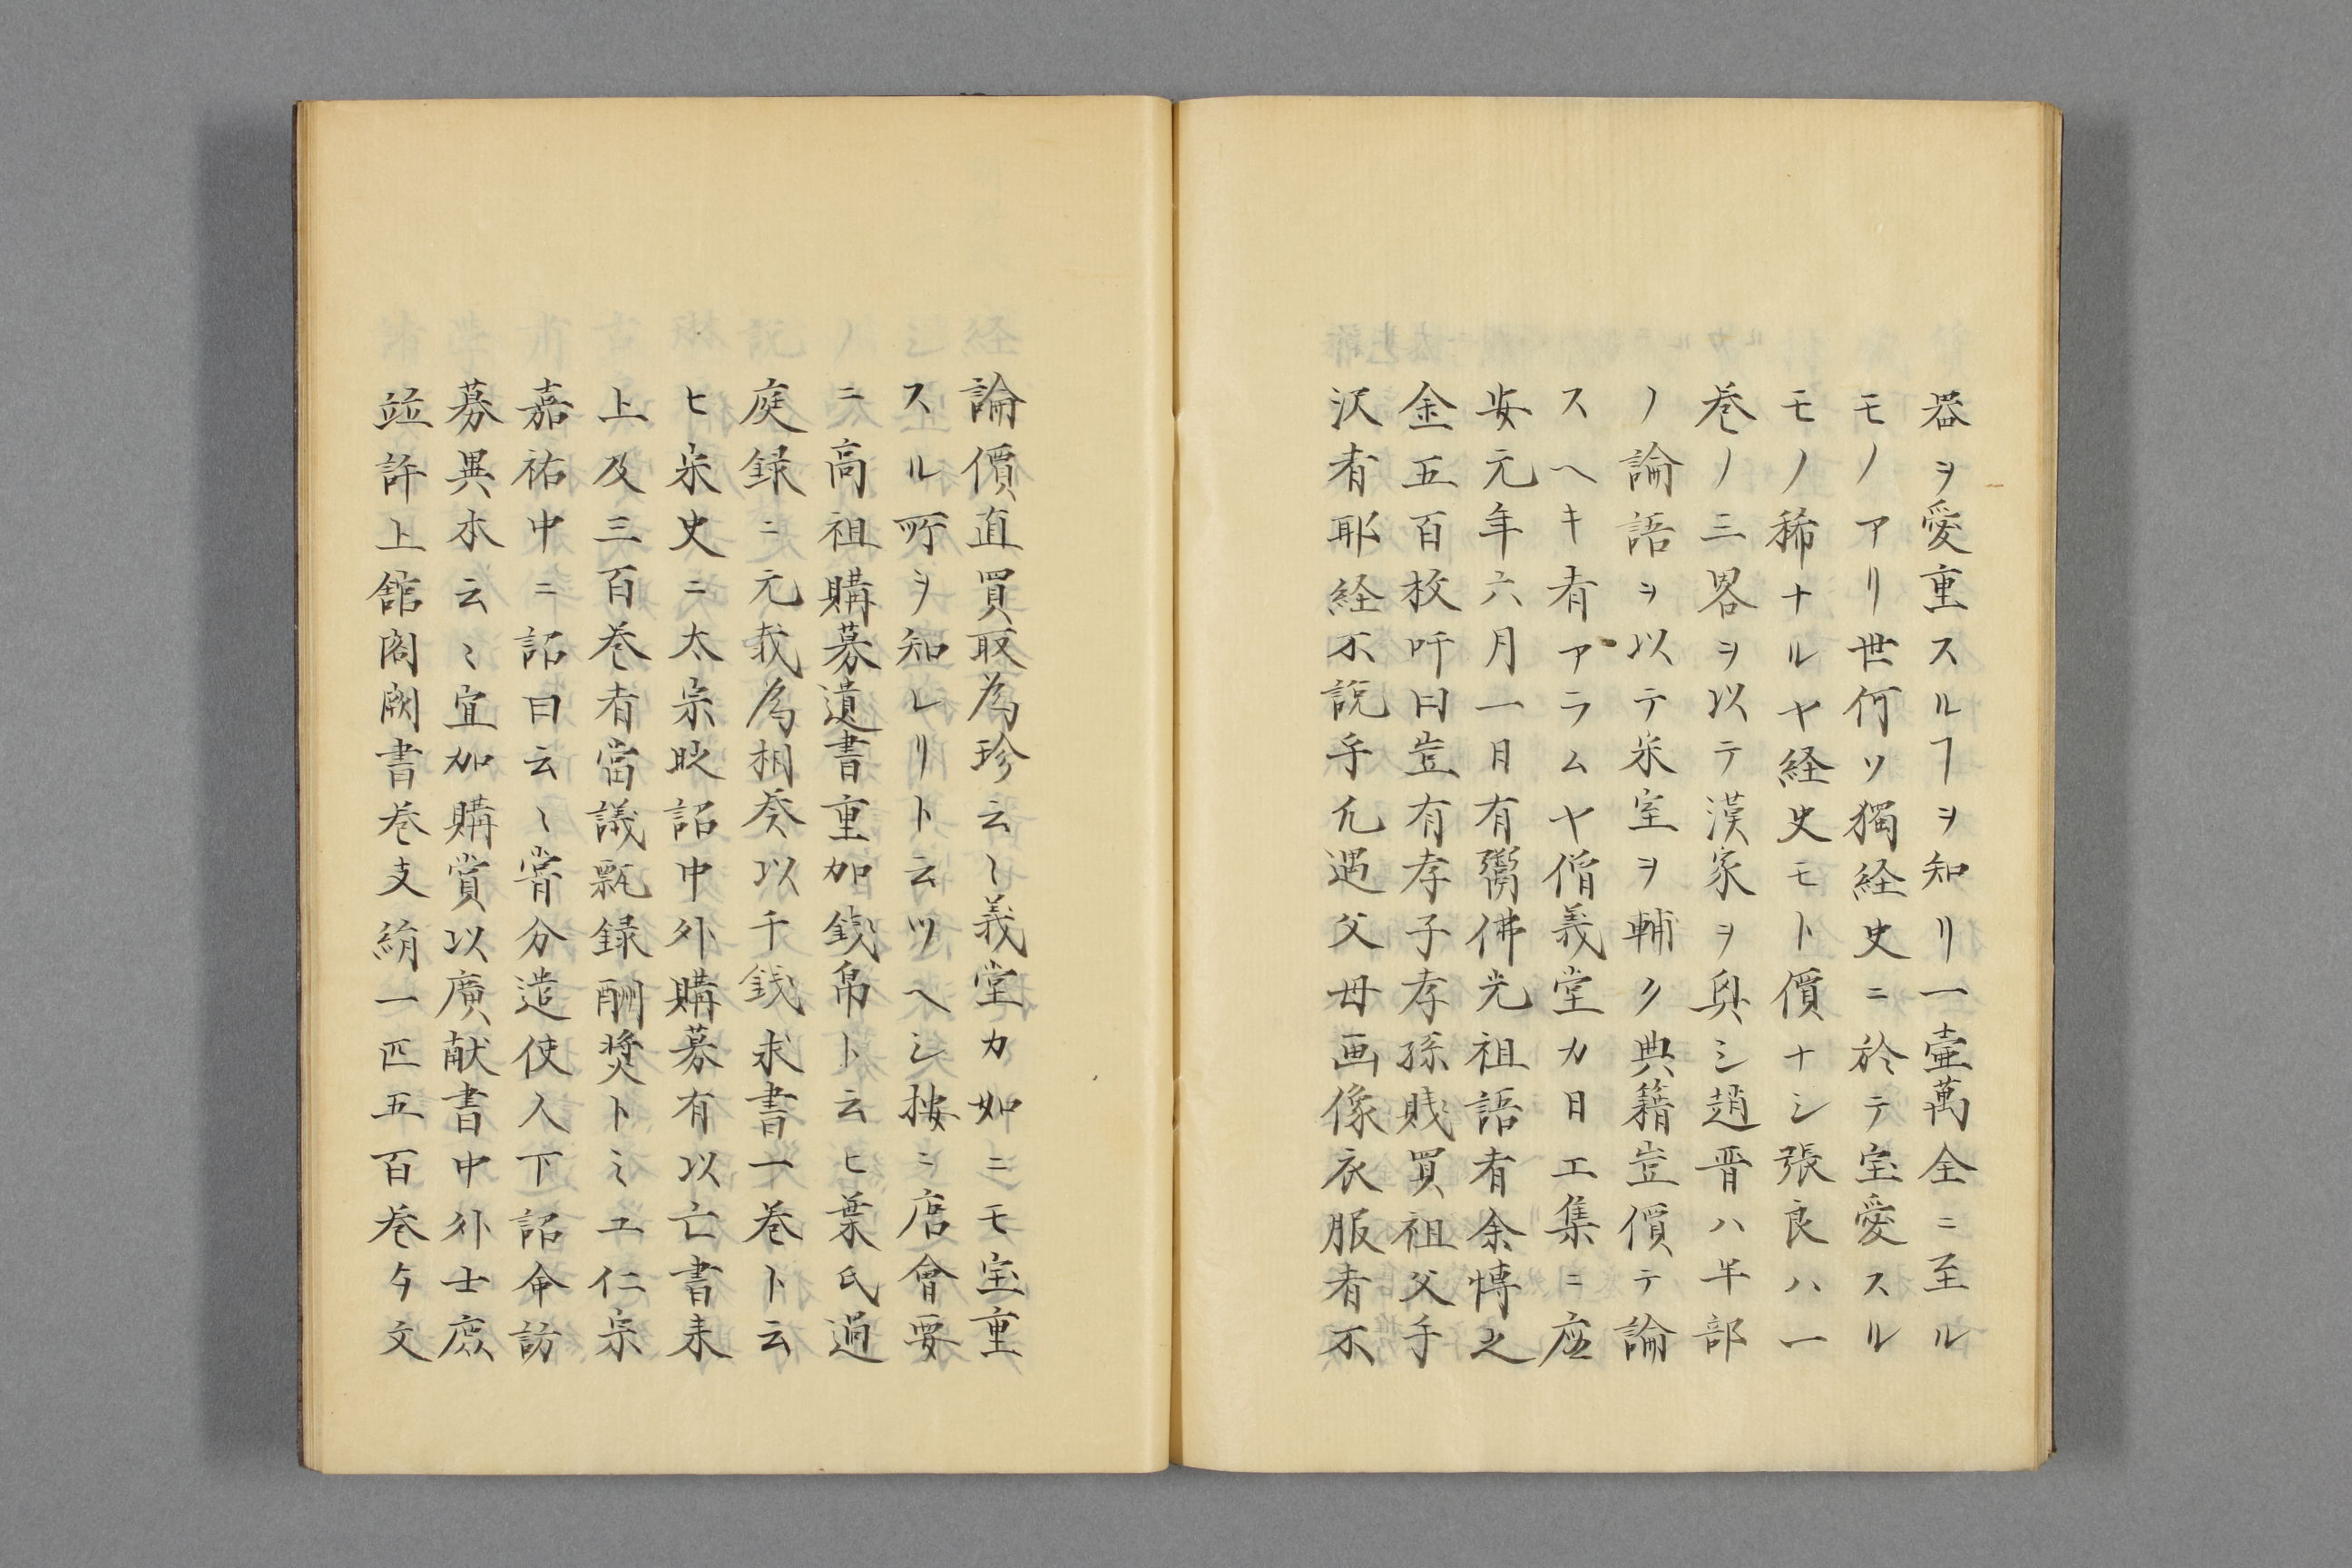 器ヲ愛重スルヿヲ知リ一壷萬全ニ至ル
モノアリ世何ソ獨経史ニ於テ宝愛スル
モノノ稀ナルヤ経史モト價ナシ張良ハ一
巻ノ三畧ヲ以テ漢家ヲ興シ趙晋ハ半部
ノ論語ヲ以テ宋室ヲ輔ク典籍豈價テ論
スヘキ者アラムヤ僧義堂カ日工集ニ應
安元年六月一日有鬻佛光祖語者余慱之
金五百枚吁曰豈有孝子孝孫賎買祖父手
沢者耶経不説乎凢遇父母画像衣服者不
論價直買取為珍云〻義堂カ如ニモ宝重
スル所ヲ知レリト云ツヘシ按ニ唐會要
ニ高祖購募遺書重加銭帛ト云ヒ葉氏過
庭録ニ元載為相奏以千銭求書一巻ト云
ヒ宋史ニ太宗眧詔中外購募有以亡書来
上及三百巻者當議甄録酬奨トミユ仁宗
嘉祐中ニ詔曰云〻甞分遣使人下詔命訪
募異本云〻宜加購賞以廣献書中外士庶
並許上舘阁闕書巻支絹一匹五百巻与文